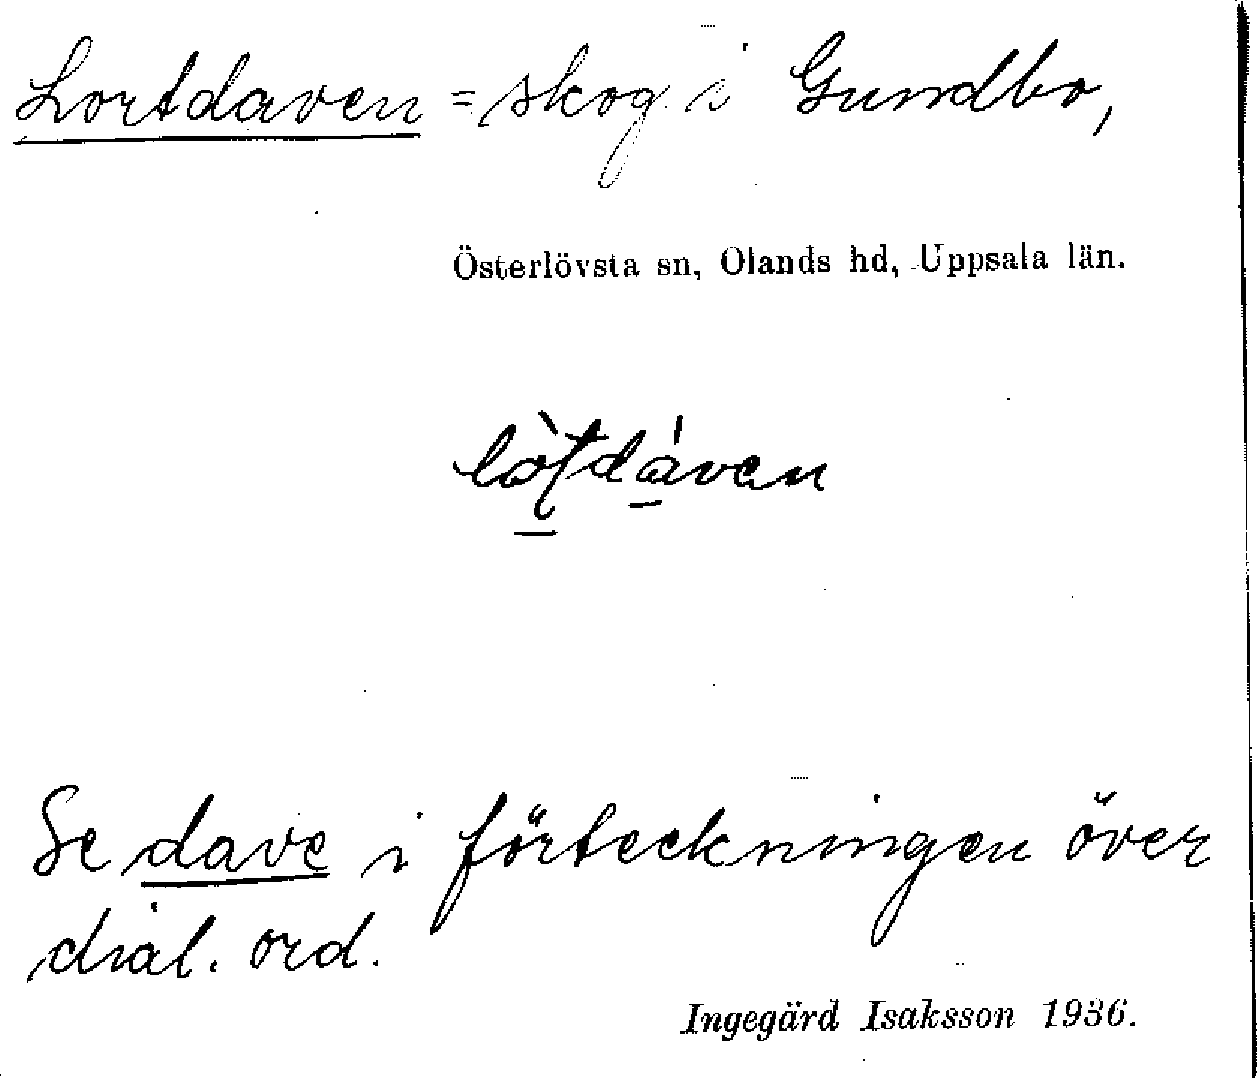 Lortdaven = skog i Gundbo,
Österlövsta sn, Olands hd, Uppsala län.
Se dave i förteckningen över
dial. ord.
Ingegärd Isaksson 1936.